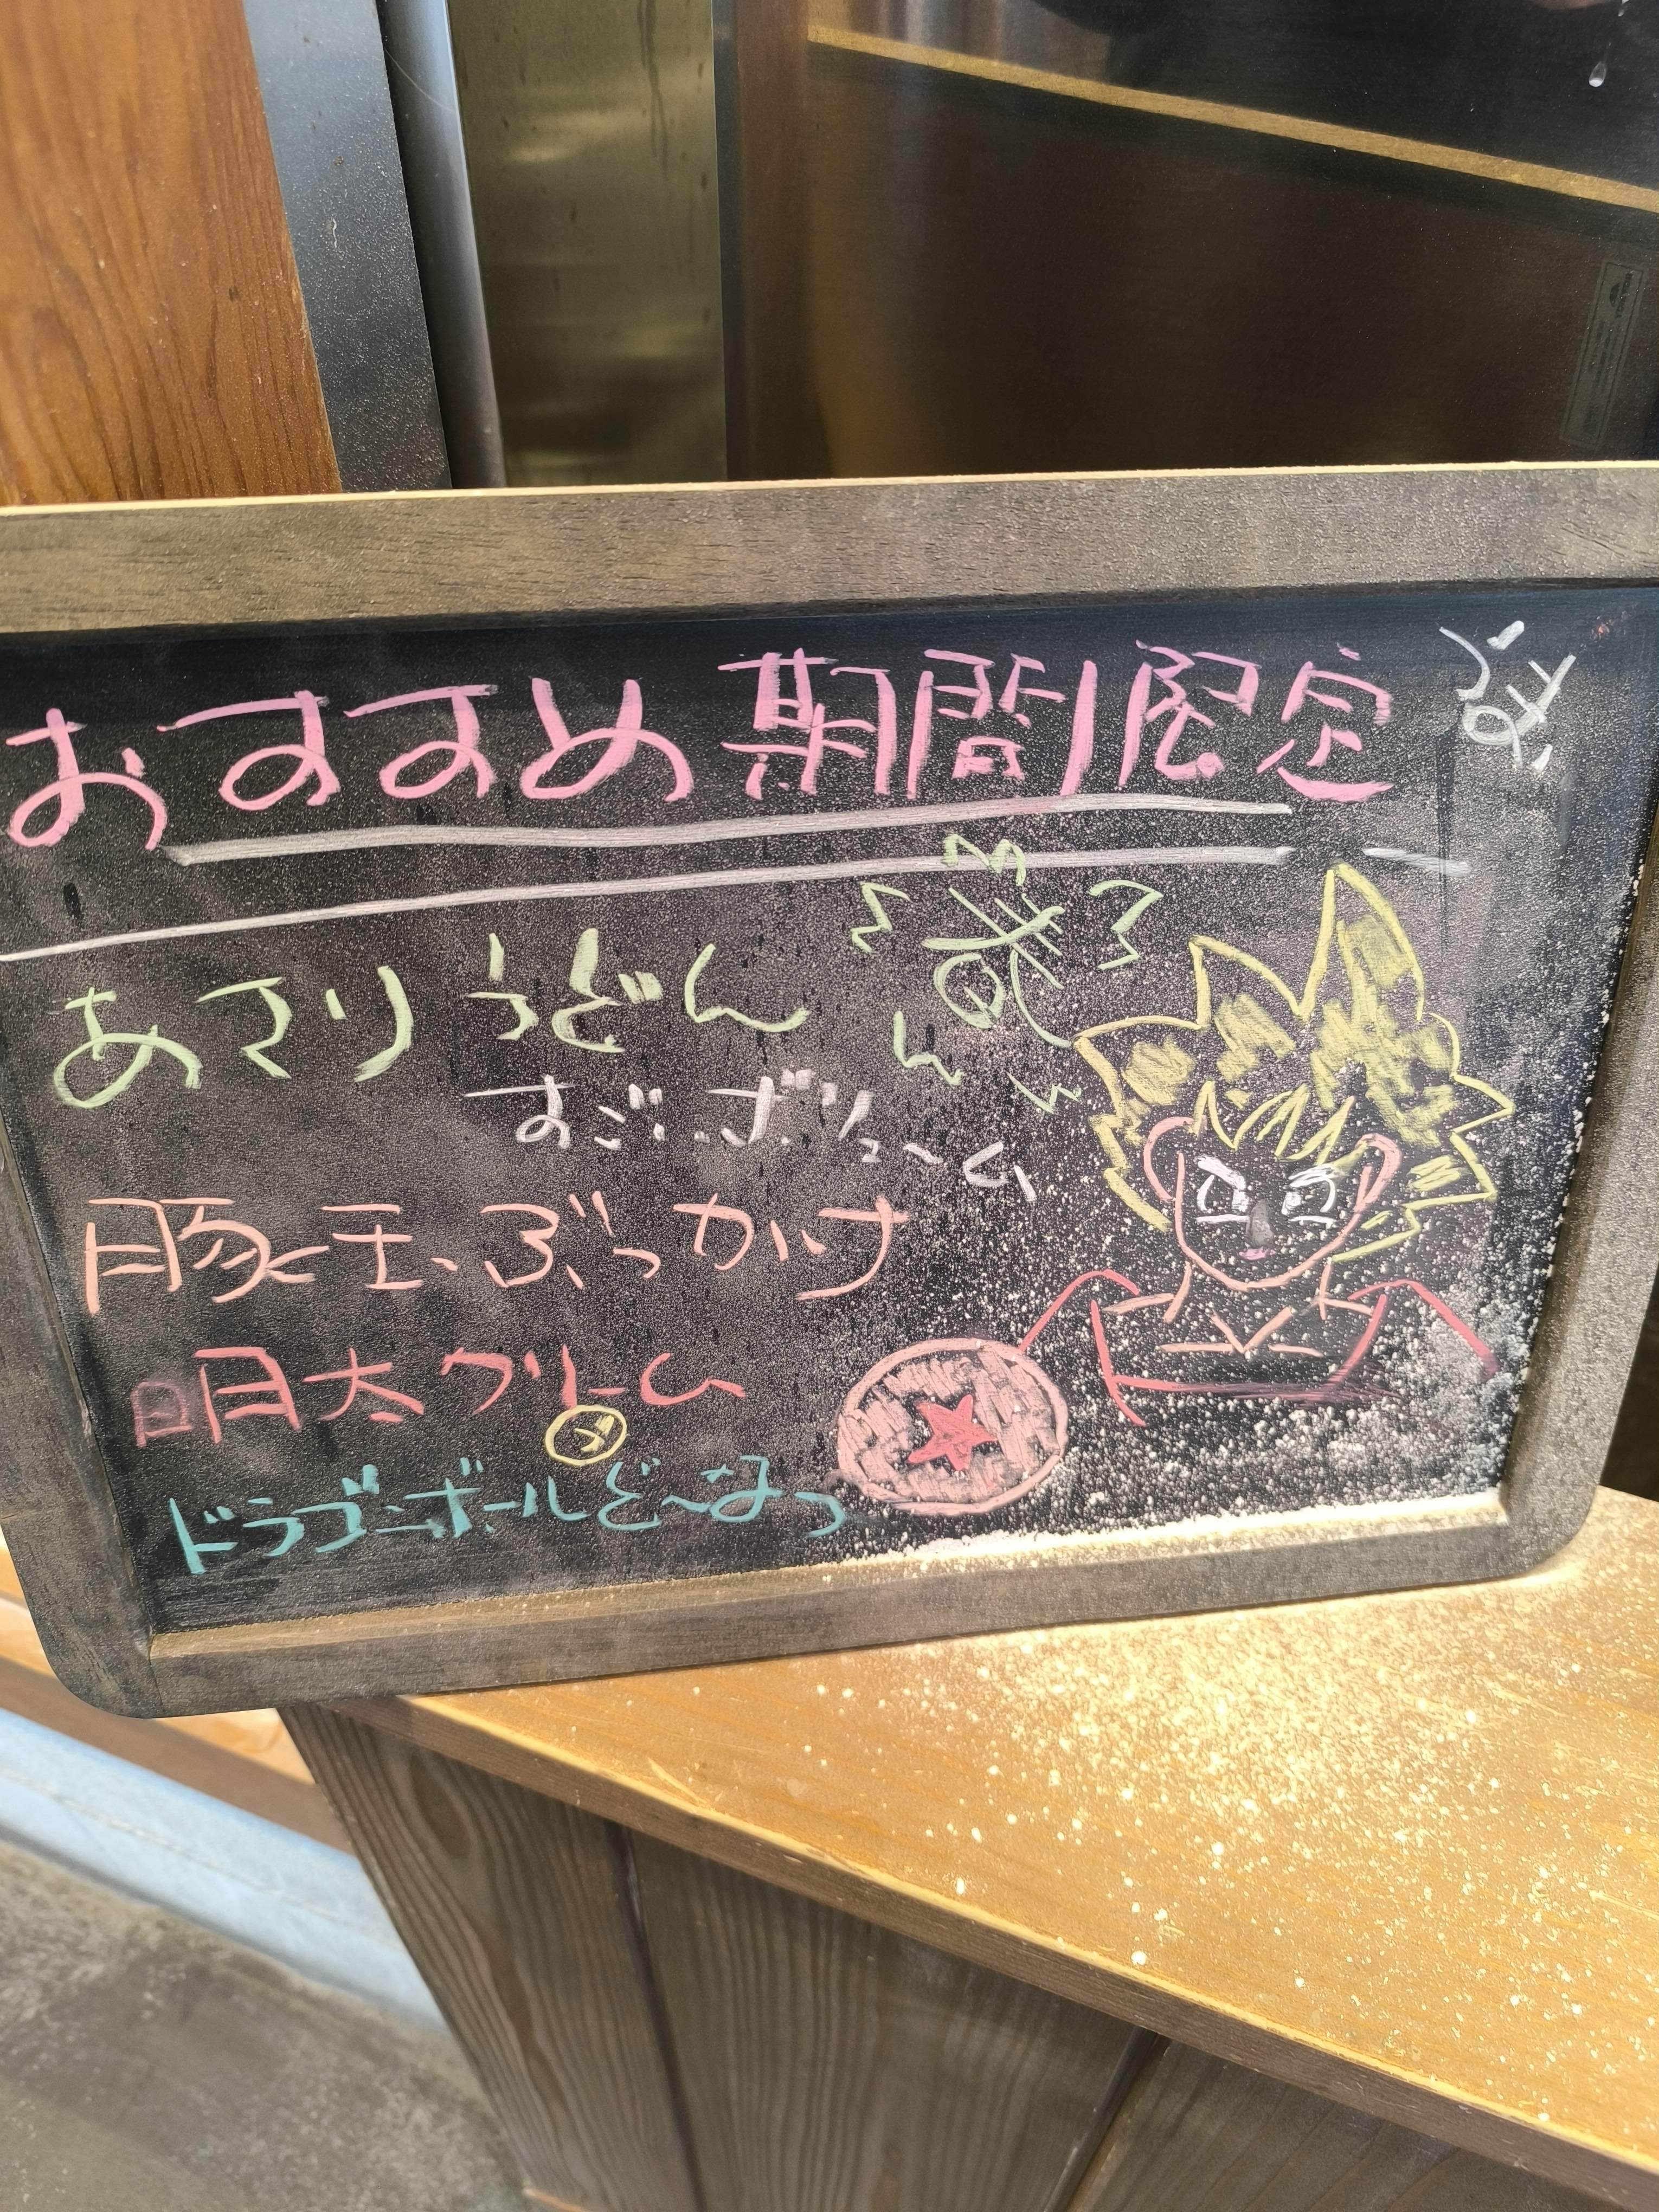 おすすめ 期間限定
あさりうどん 春
すごいボリューム
豚玉ぶっかけ
明太クリーム
ドラゴンボールどーなつ